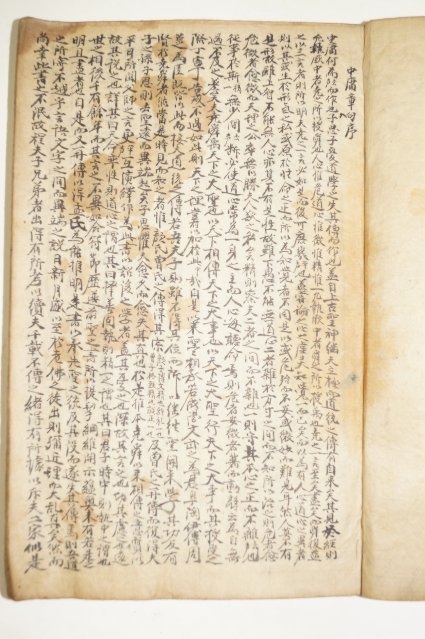 中庸章句序
中庸何為而作也子思子憂道學之失其傳而作也蓋自上古聖神繼天立極而道統之傳有自來矣其見於經則
允執厥中者堯之所以授舜也人心惟危道心惟微惟精惟一允執厥中者舜之所以授禹也堯之一言至矣盡矣而舜復益
之以三言者則所以明夫堯之一言必如是而後可庶幾也蓋嘗論之心之虛靈知覺一而已矣而以為有人心道心之異者
則以其或生於形氣之私或原於性命之正而所以為知覺者不同是以或危殆而不安或微妙而難見耳然人莫不有
是形故雖上智不能無人心亦莫不有是性故雖下愚不能無道心二者雜於方寸之間而不知所以治之則危者愈
危微者愈微而天理之公卒無以勝夫人欲之私矣精則察夫二者之間而不雜也一則守其本心之正而不離也
從事於斯無少間斷必使道心常為一身之主而人心每聽命焉則危者安微者著而動靜云為自無
過不及之差矣夫堯舜禹天下之大聖也以天下相傳天下之大事也以天下之大聖行天下之大事而其授受之
際丁寧告戒不過如此則天下之理豈有以加於此哉自是以來聖聖相承若成湯文武之為君皋陶伊傅周
召之為臣既皆以此而接夫道統之傳若吾夫子則雖不得其位而所以繼往聖開來學其功反有
賢於堯舜者然當是時見而知之者惟顏氏曾氏之傳得其宗及曾氏之再傳而復得夫
子之孫子思則去聖遠而異端起矣子思懼夫愈久而愈失其真也於是推本堯舜以來相傳之意質以
平日所聞父師之言更互演繹作為此書以詔後之學者蓋其憂之也深故其言之也切其慮之也遠
故其說之也詳其曰天命率性則道心之謂也其曰擇善固執則精一之謂也其曰君子時中則執中之謂也
世之相後千有餘年而其言之不異如合符節歷選前聖之書所以提挈綱維開示蘊奧未有若是
明且盡者也自是而又再傳以得孟氏為能推明是書以承先聖之統及其沒而遂失其傳焉則吾道
之所寄不越乎言語文字之間而異端之說日新月盛以至於老佛之徒出則彌近理而大亂真矣然而
尚幸此書之不泯故程夫子兄弟者出得有所考以續夫千載不傳之緒得有所據以斥夫二家似是